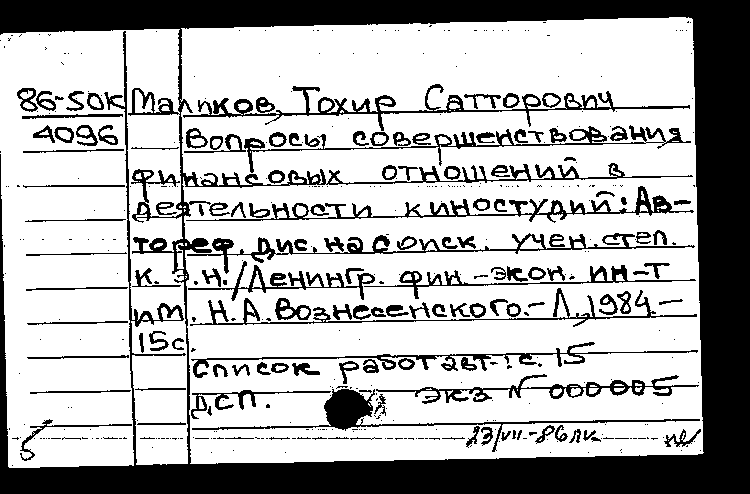 86-50к Маликов, Тохир Сатторович
4096 Вопросы совершенствования
финансовых отношений в
деятельности киностудий: Ав-
тореф. дис. на соиск. учен. степ.
к. э. н. / Ленингр. фин.-экон. ин-т
им. Н. А. Вознесенского. - Л., 1984. -
15с.
Список работ авт.: с. 15
ДСП. экз № 000005
23/VII-86